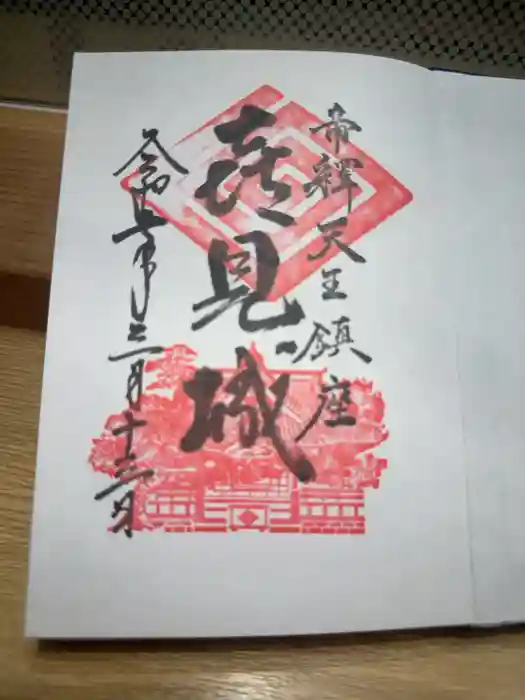 帝釋天王鎮座
喜見城
令和七年三月十三日